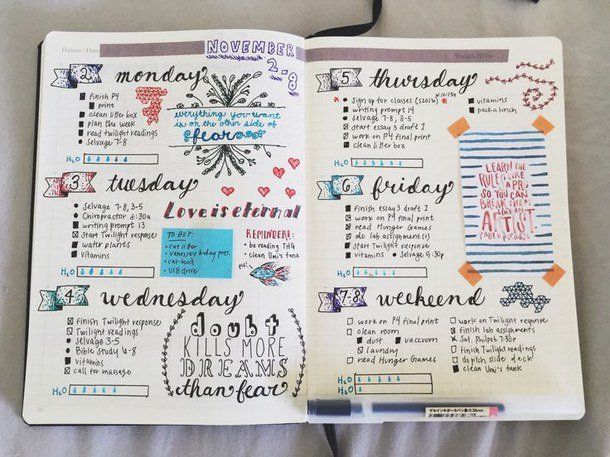 Datum / Date:
NOVEMBER
2-8
2
monday
finish P4
print
clean litter box
plan the week
read twilight readings
Selvage 7-8
H2O
everything you want
is on the other side of
fear
3
tuesday
Selvage 7-8, 3-5
Chiropractor 4:30a
writing prompt 13
Start Twilight response
water plants
vitamins
H2O
Love is eternal
TO BUY:
cat litter
cat food
USB drive
REMINDERS!
be reading THG
clean Uni's tank
4
wednesday
finish Twilight response
Twilight readings
Selvage 3-5
Bible Study 6-8
vitamins
call for massage
H2O
doubt
KILLS MORE
DREAMS
than fear
5
thursday
Sign up for classes (S2016)
writing prompt 14
Selvage 7-8, 3-5
start essay 3 draft 1
work on P4 final print
clean litter box
vitamins
pack a lunch
H2O
LEARN THE
RULES LIKE
A PRO,
SO YOU CAN
BREAK THEM
LIKE AN
ARTIST.
PABLO PICASSO
6
friday
finish essay 3 draft 1
work on P4 final print
read Hunger Games
do lab assignment(s)
Start Twilight response
vitamins • Selvage 5:30p
H2O
7-8
weekend
work on P4 final print
clean room
dust
vaccuum
laundry
read Hunger Games
work on Twilight response
finish lab assignments
finish Twilight readings
clean Uni's tank
H2O